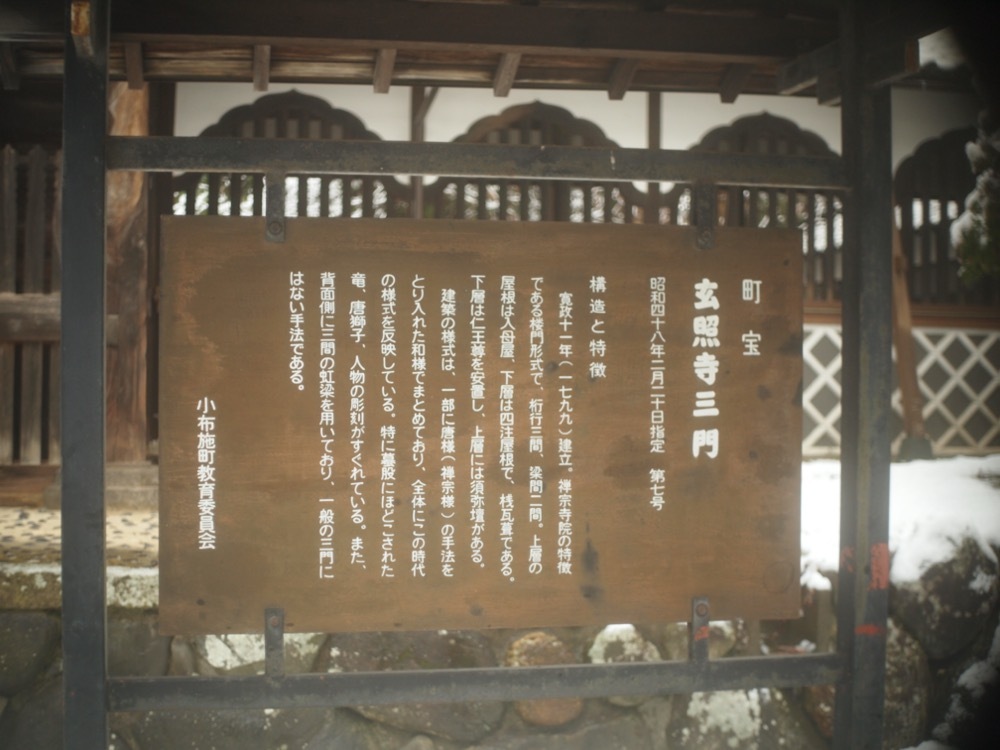 町宝
玄照寺三門
昭和四十八年二月二十日指定　第七号
構造と特徴
寛政十一年（一七九九）建立。禅宗寺院の特徴
である楼門形式で、桁行三間、梁間二間。上層の
屋根は入母屋、下層は四注屋根で、桟瓦葺である。
下層は仁王尊を安置し、上層には須弥壇がある。
建築の様式は、一部に唐様（禅宗様）の手法を
とり入れた和様でまとめており、全体にこの時代
の様式を反映している。特に蟇股にほどこされた
竜、唐獅子、人物の彫刻がすぐれている。また、
背面側に三間の虹梁を用いており、一般の三門に
はない手法である。
小布施町教育委員会